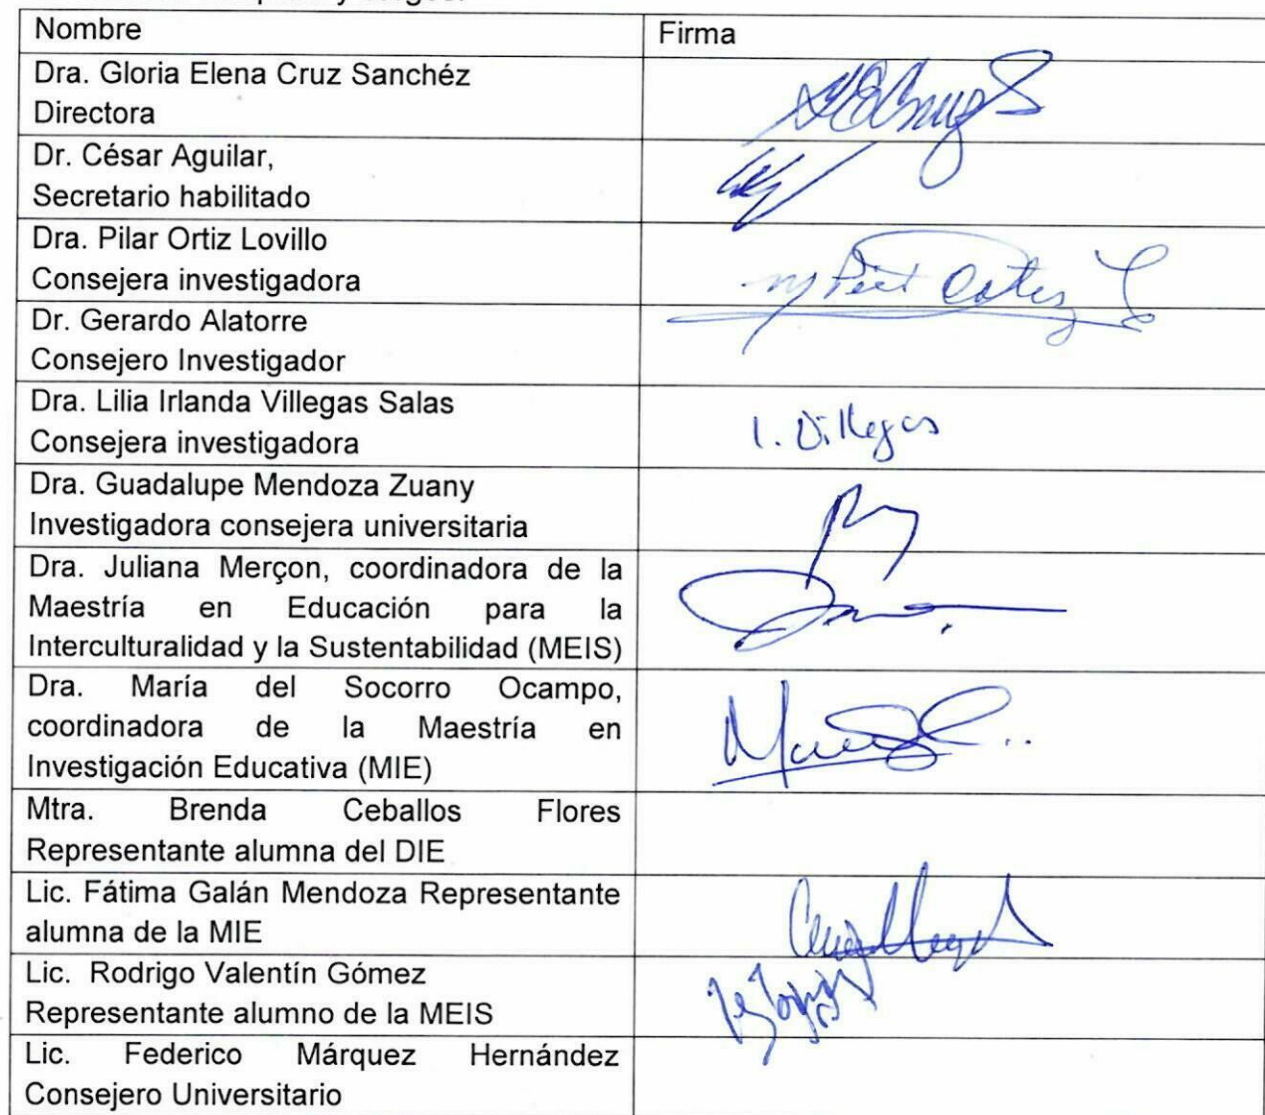 Nombre
Firma
Dra. Gloria Elena Cruz Sanchéz
Directora
Dr. César Aguilar,
Secretario habilitado
Dra. Pilar Ortiz Lovillo
Consejera investigadora
Dr. Gerardo Alatorre
Consejero Investigador
Dra. Lilia Irlanda Villegas Salas
Consejera investigadora
I. Villegas
Dra. Guadalupe Mendoza Zuany
Investigadora consejera universitaria
Dra. Juliana Merçon, coordinadora de la
Maestría en Educación para la
Interculturalidad y la Sustentabilidad (MEIS)
Dra. María del Socorro Ocampo,
coordinadora de la Maestría en
Investigación Educativa (MIE)
Mtra. Brenda Ceballos Flores
Representante alumna del DIE
Lic. Fátima Galán Mendoza Representante
alumna de la MIE
Lic. Rodrigo Valentín Gómez
Representante alumno de la MEIS
Lic. Federico Márquez Hernández
Consejero Universitario